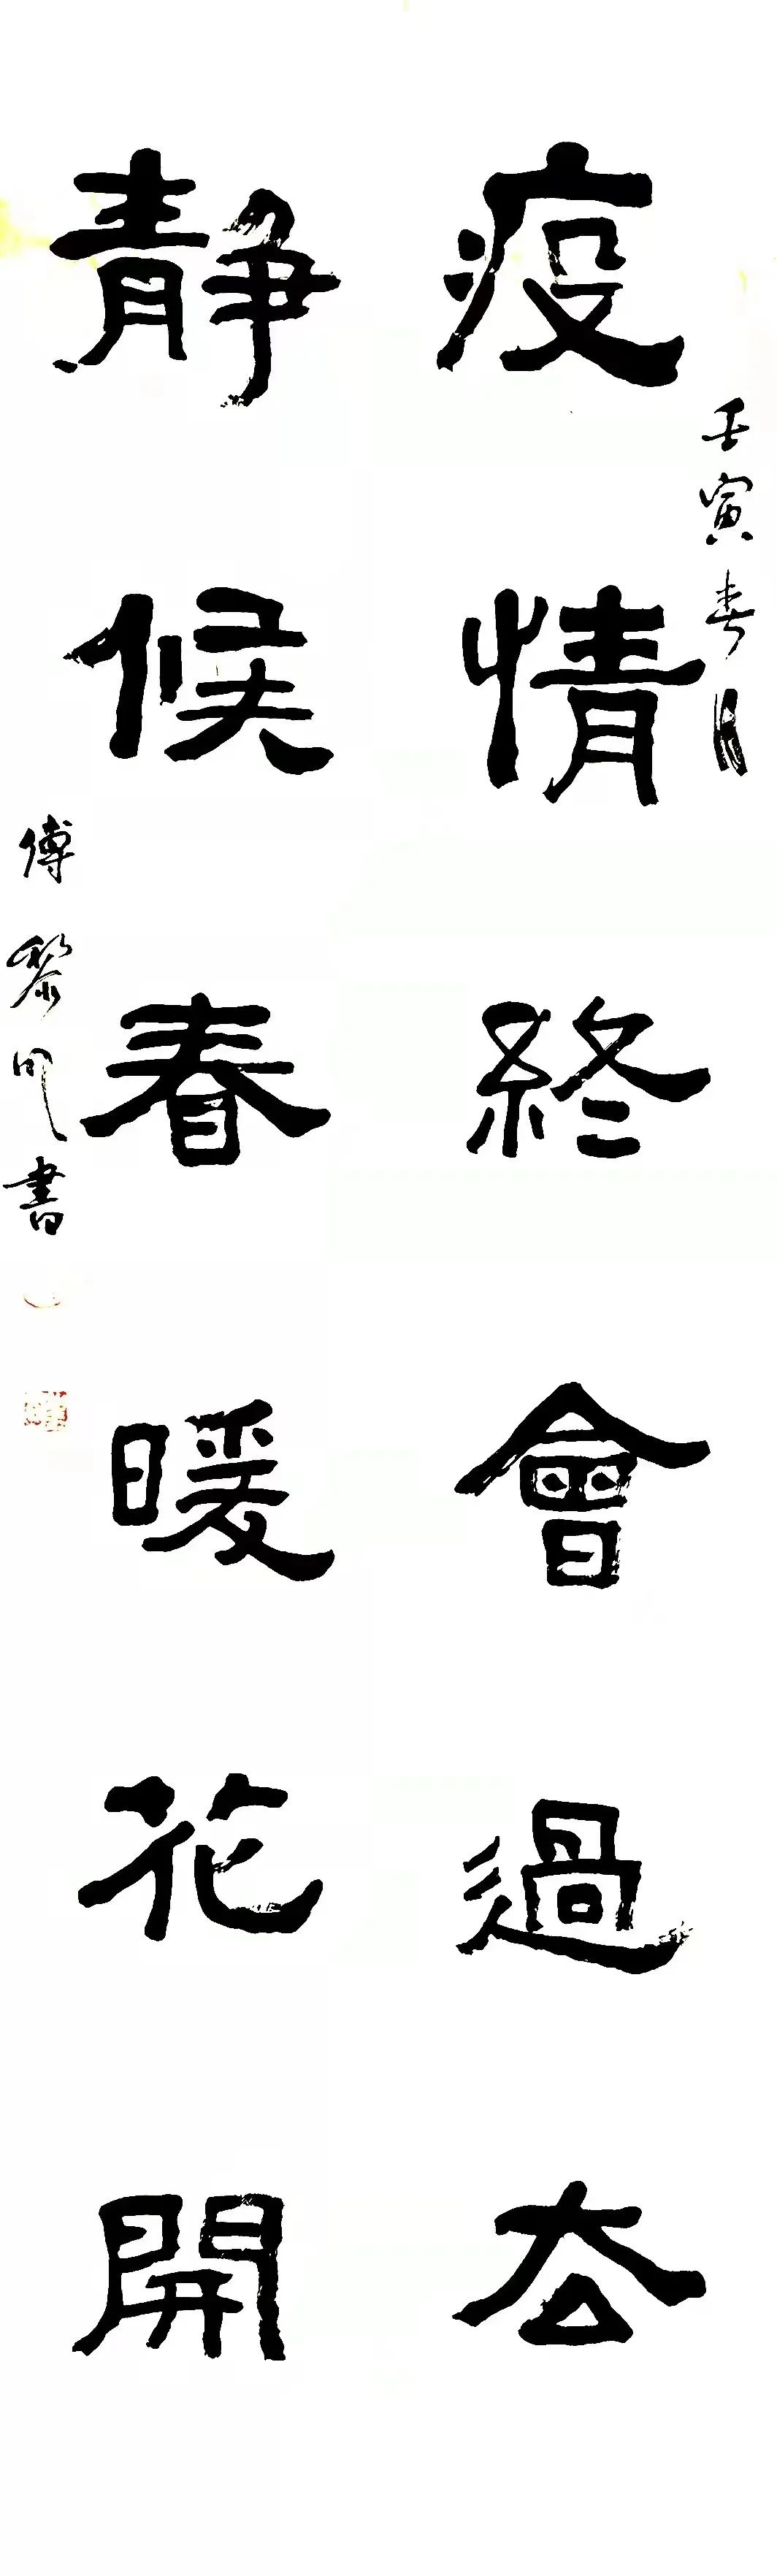 疫情終會過去
壬寅春月
靜候春暖花開
傅黎明書